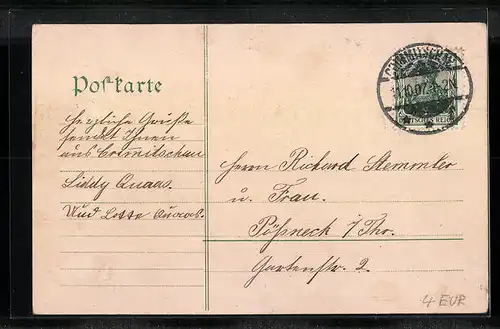 Postkarte
CRIMMITSCHAU
10.07. 1-2N
DEUTSCHES REICH
Herzliche Grüße
sendet Ihnen
aus Crimmitschau
Liddy Quaas.
Und Lotte Quaas.
Herrn Richard Stemmler
u. Frau.
Pößneck i/Thr.
Gartenstr. 2.
4 EUR